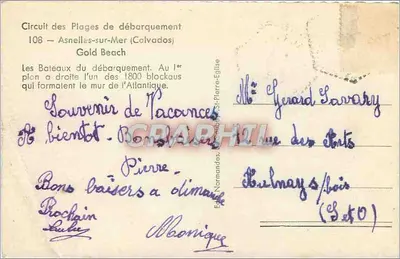 Circuit des Plages de débarquement
108 — Asnelles-sur-Mer (Calvados)
Gold Beach
Les Bateaux du débarquement. Au 1er
plan a droite l'un des 1800 blockaus
qui formaient le mur de l'Atlantique.
Souvenir de Vacances
A bientôt - Bons baisers
Pierre -
Bons baisers a dimanche
Prochain
Monique
Normandes
St-Pierre-Eglise
Mr Gérard Savary
rue des Arts
Aulnays/bois
(S et O)